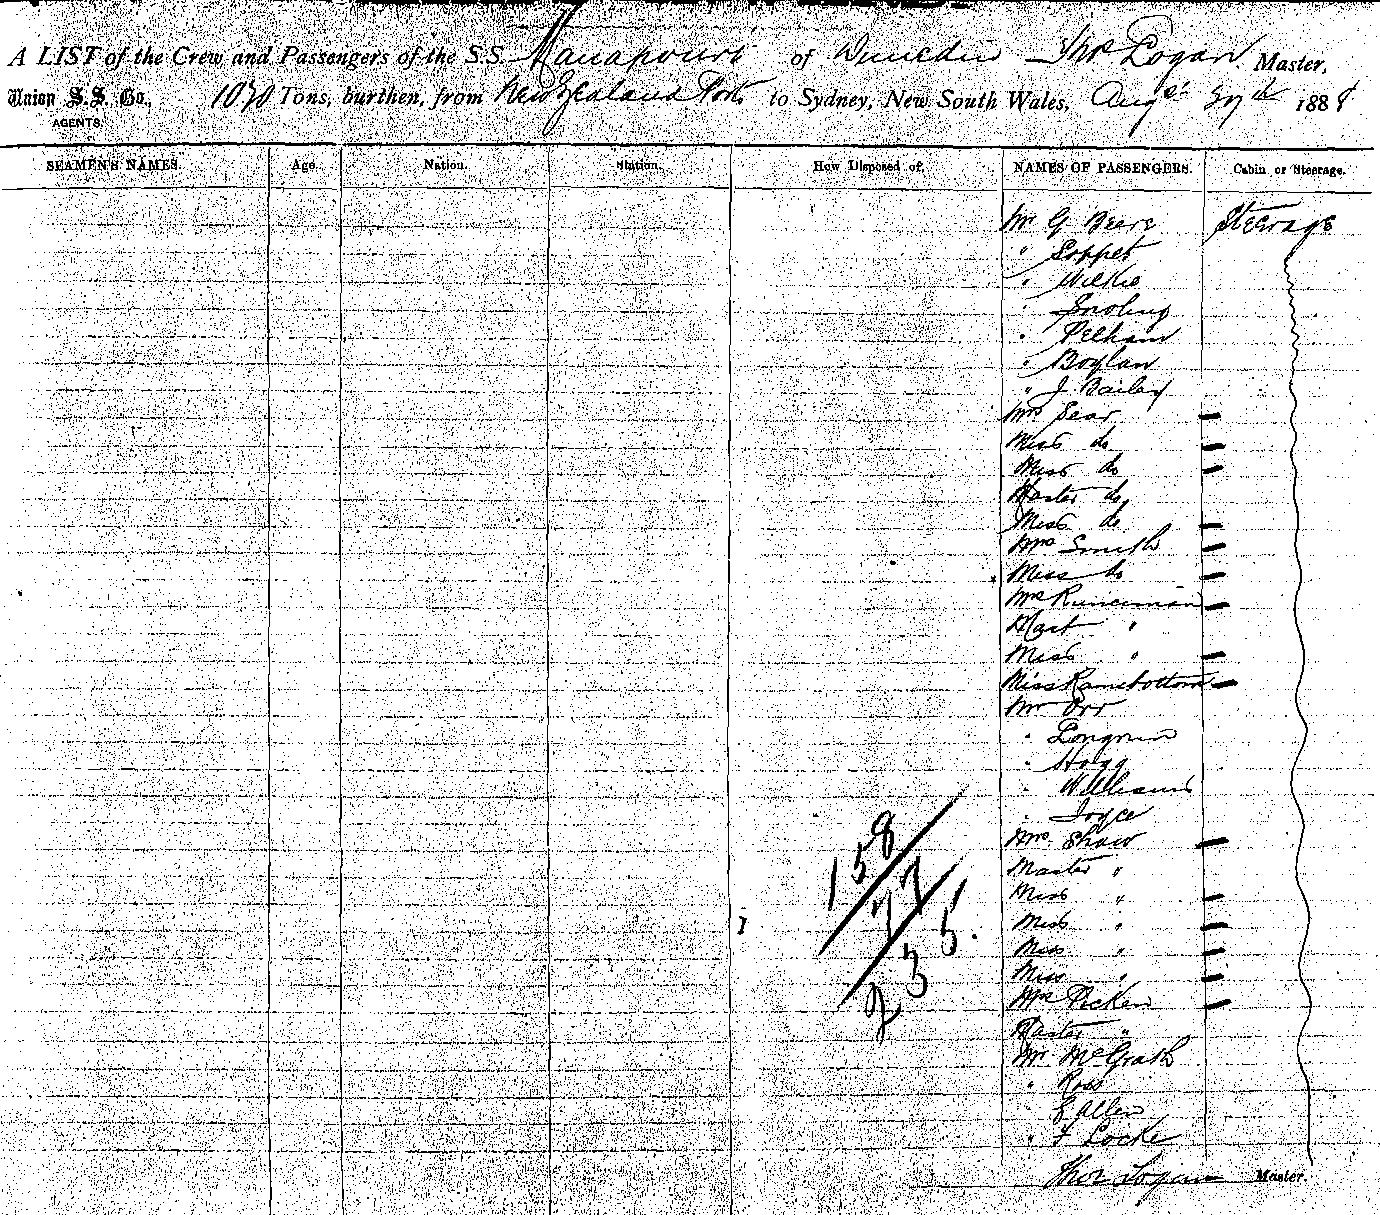 A LIST of the Crew and Passengers of the S.S. Manapouri of Dunedin Thos Logan. Master,
Union S.S. Co., 1020 Tons, burthen, from New Zealand Ports to Sydney, New South Wales, Augst 1888
AGENTS.
SEAMEN'S NAMES. Age. Nation. Station. How Disposed of. NAMES OF PASSENGERS. Cabin or Steerage.
Mr G Beere Steerage
" Soppet
" Wilkie
" Snoling
" Pelham
" Boylan
" J. Bailey
Mrs Sear —
Miss do —
Miss do —
Master do
Miss do —
Mrs Smith —
Miss do —
Mrs Runciman —
Mast "
Miss " —
Miss Ramsbottom —
Mr Orr
" Longmin
" Hogg
" Williams
" Joyce
Mrs Shaw —
Master "
Miss " —
Miss " —
Miss " —
Miss " —
Mrs Picken —
Master "
Mr McGrath
" Ross
" E Allen
" F Locke
158
77
235.
Thos Logan Master.